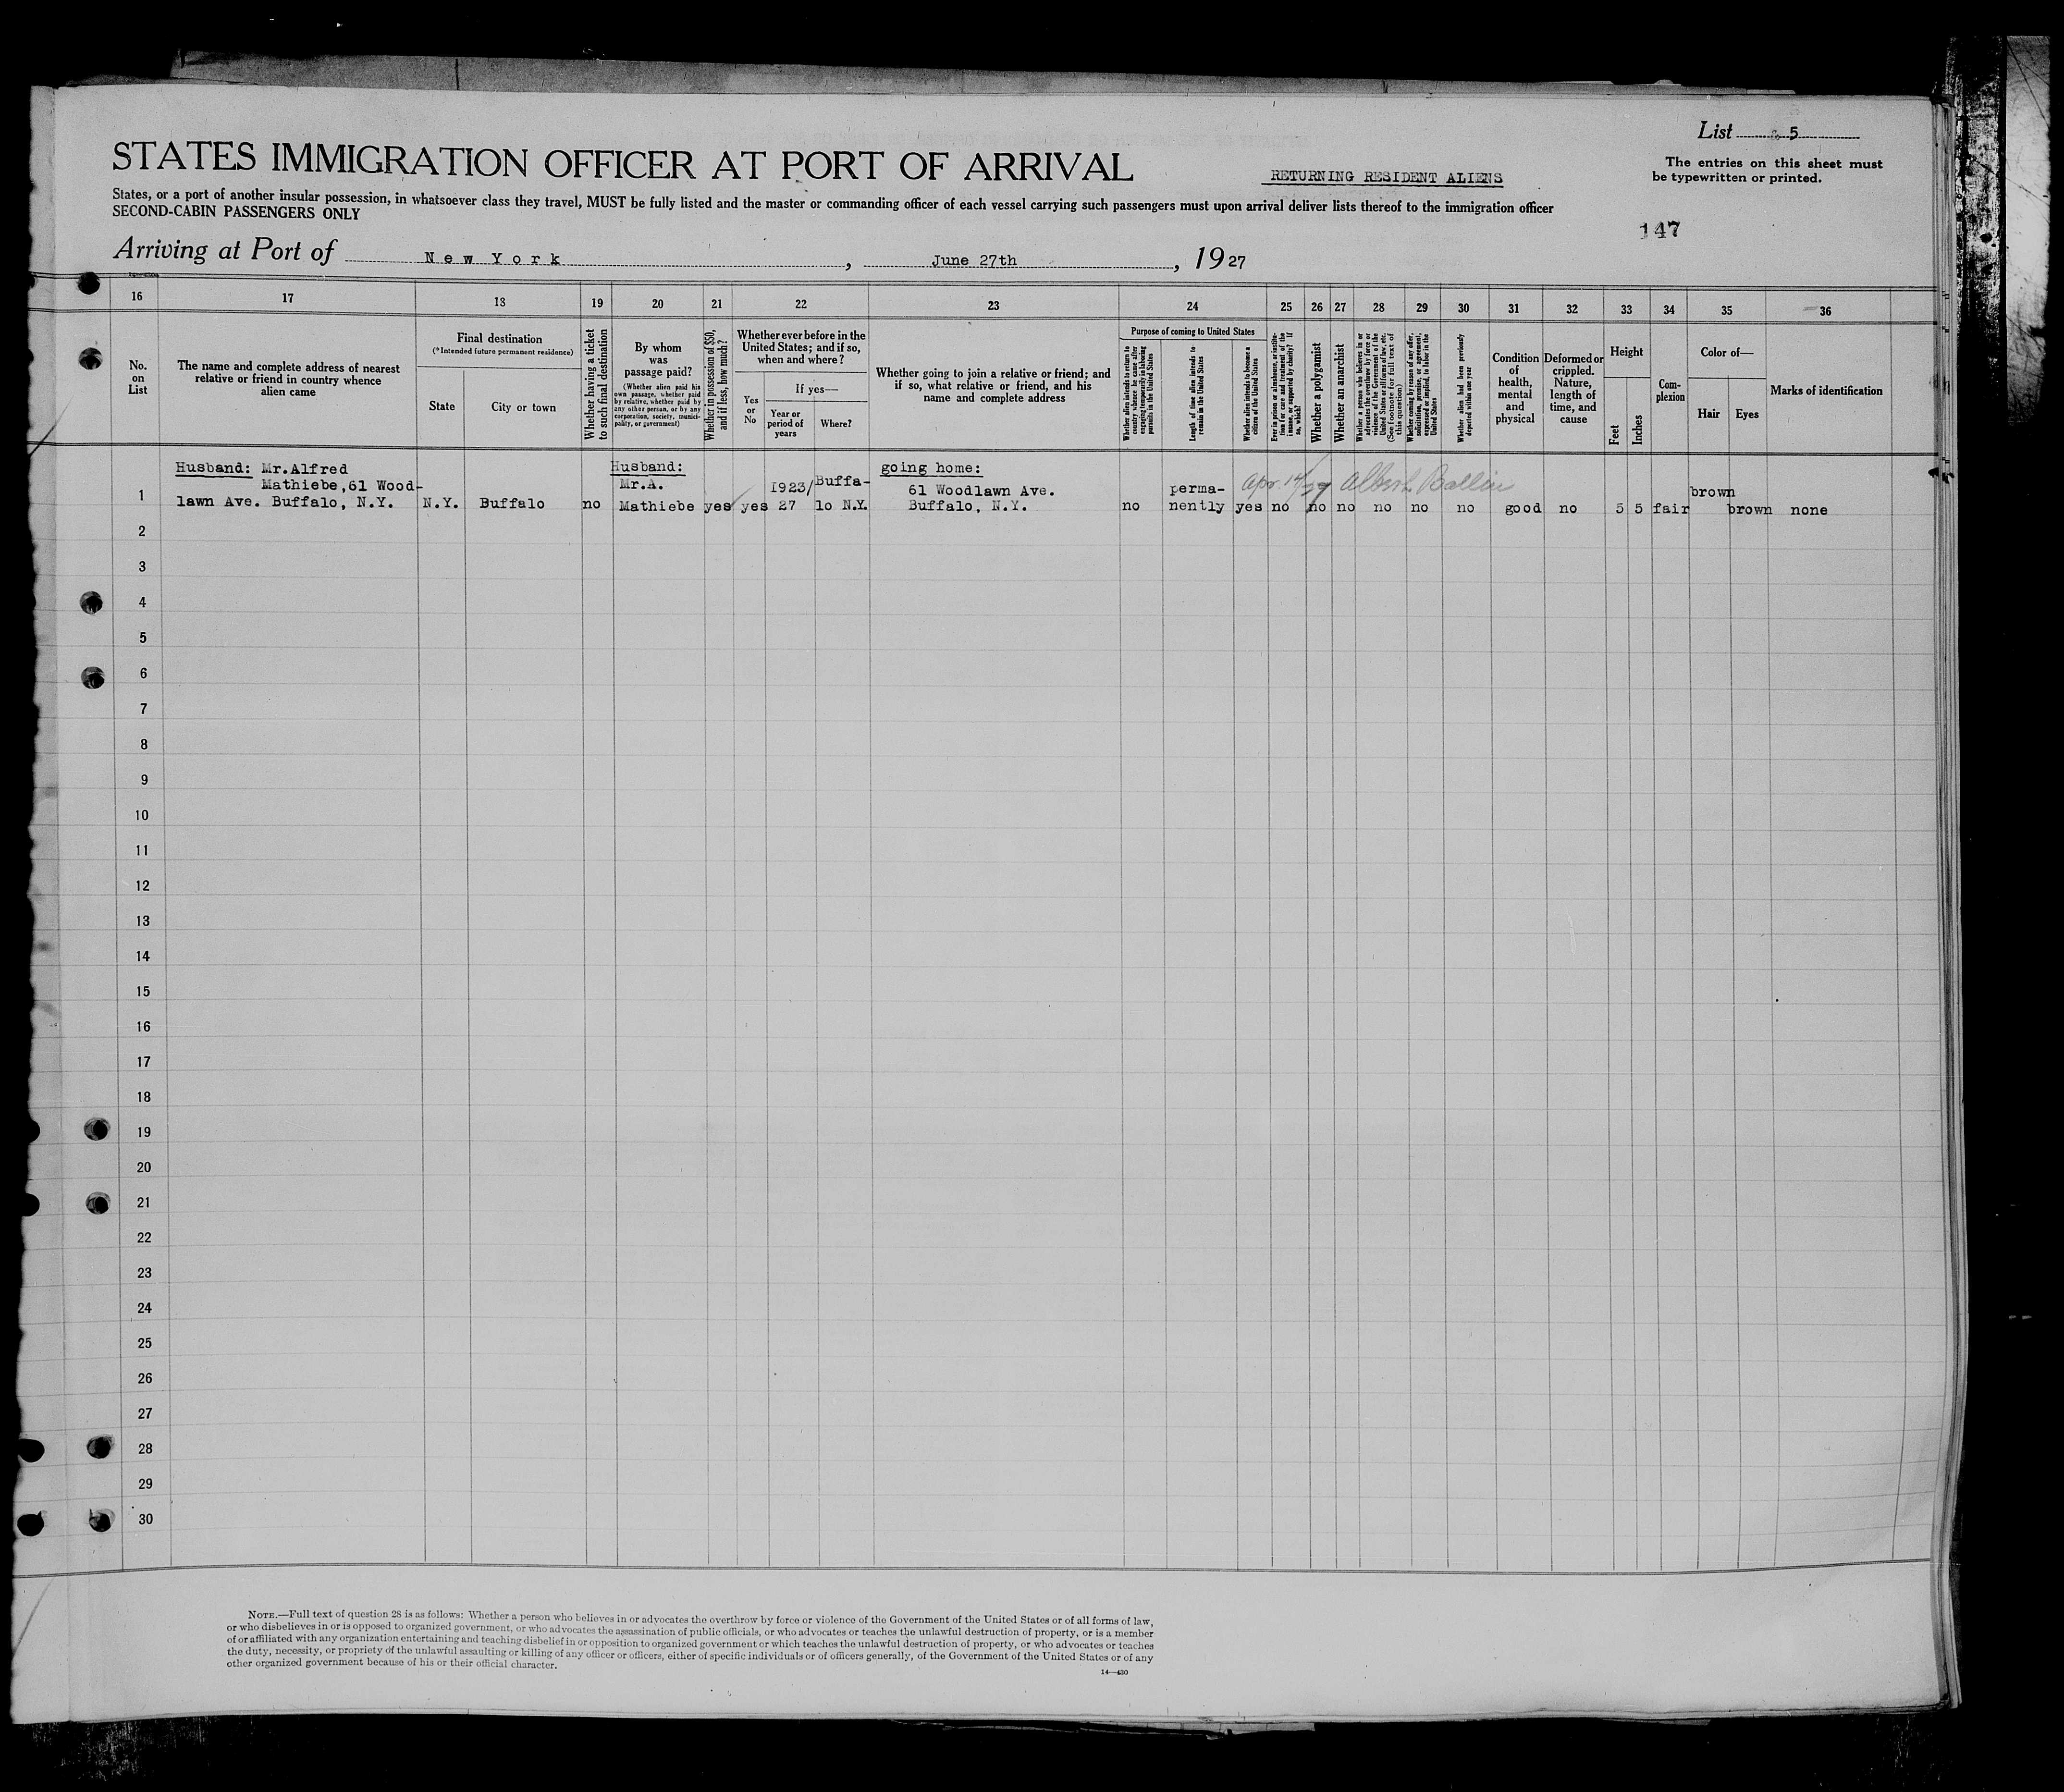 List 5
STATES IMMIGRATION OFFICER AT PORT OF ARRIVAL
RETURNING RESIDENT ALIENS
The entries on this sheet must
be typewritten or printed.
States, or a port of another insular possession, in whatsoever class they travel, MUST be fully listed and the master or commanding officer of each vessel carrying such passengers must upon arrival deliver lists thereof to the immigration officer
SECOND-CABIN PASSENGERS ONLY
147
Arriving at Port of New York, June 27th, 1927
16 17 18 19 20 21 22 23 24 25 26 27 28 29 30 31 32 33 34 35 36
No.
on
List
The name and complete address of nearest
relative or friend in country whence
alien came
Final destination
(*Intended future permanent residence)
State
City or town
Whether having a ticket
to such final destination
By whom
was
passage paid?
(Whether alien paid his
own passage, whether paid
by relative, whether paid by
any other person, or by any
corporation, society, munici-
pality, or government)
Whether in possession of $50,
and if less, how much?
Whether ever before in the
United States; and if so,
when and where?
Yes
or
No
If yes—
Year or
period of
years
Where?
Whether going to join a relative or friend; and
if so, what relative or friend, and his
name and complete address
Purpose of coming to United States
Whether alien intends to return to
country whence he came after
engaging temporarily in laboring
pursuits in the United States
Length of time alien intends to
remain in the United States
Whether alien intends to become a
citizen of the United States
Ever in prison or almshouse, or institu-
tion for care and treatment of the
insane, or supported by charity? If
so, which?
Whether a polygamist
Whether an anarchist
Whether a person who believes in or
advocates the overthrow by force or
violence of the Government of the
United States or all forms of law, etc.
(See footnote for full text of
this question)
Whether coming by reason of any offer,
solicitation, promise, or agreement,
expressed or implied, to labor in the
United States
Whether alien had been previously
deported within one year
Condition
of
health,
mental
and
physical
Deformed or
crippled.
Nature,
length of
time, and
cause
Height
Feet
Inches
Com-
plexion
Color of—
Hair
Eyes
Marks of identification
1
Husband: Mr.Alfred
Mathiebe,61 Wood-
lawn Ave. Buffalo, N.Y.
N.Y.
Buffalo
no
Husband:
Mr.A.
Mathiebe
yes
yes
1923/
27
Buffa-
lo N.Y.
going home:
61 Woodlawn Ave.
Buffalo, N.Y.
no
perma-
nently
yes
Apr. 14/27 Albert Ballin
no no no no no no good no 5 5 fair brown brown none
2
3
4
5
6
7
8
9
10
11
12
13
14
15
16
17
18
19
20
21
22
23
24
25
26
27
28
29
30
NOTE.—Full text of question 28 is as follows: Whether a person who believes in or advocates the overthrow by force or violence of the Government of the United States or of all forms of law,
or who disbelieves in or is opposed to organized government, or who advocates the assassination of public officials, or who advocates or teaches the unlawful destruction of property, or is a member
of or affiliated with any organization entertaining and teaching disbelief in or opposition to organized government or which teaches the unlawful destruction of property, or who advocates or teaches
the duty, necessity, or propriety of the unlawful assaulting or killing of any officer or officers, either of specific individuals or of officers generally, of the Government of the United States or of any
other organized government because of his or their official character.
14—430